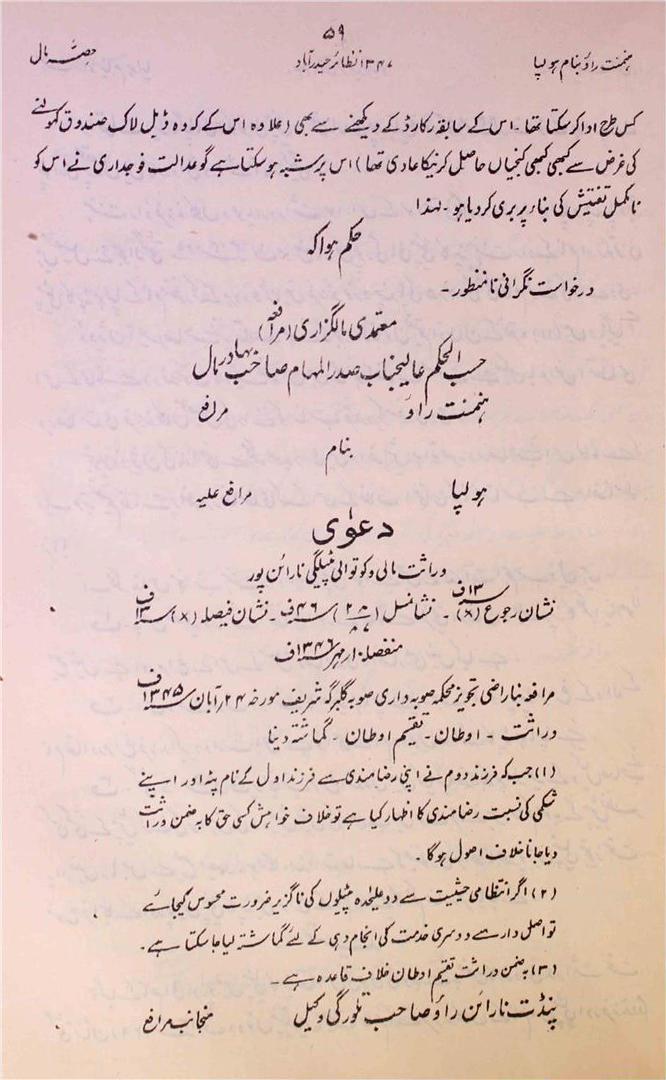 ۵۹
ہنمنت راؤ بنام ہولپا ۱۳۴۷ نظائر حیدرآباد حصہ مال
کس طرح ادا کر سکتا تھا۔ اس کے سابقہ رکارڈ کے دیکھنے سے بھی (علاوہ اس کے کہ وہ ڈبل لاک صندوق کھولنے
کی غرض سے کبھی کبھی کنجیاں حاصل کرنیکا عادی تھا) اس پر شبہ ہو سکتا ہے گو عدالت فوجداری نے اس کو
نامکمل تفتیش کی بناء پر بری کر دیا ہو۔ لہذا
حکم ہوا کہ
درخواست نگرانی نامنظور۔
معتمدی مالگزاری (مرافعہ)
حسب الحکم عالیجناب صدر المہام صاحب بہادر مال
ہنمنت راؤ مرافع
بنام
ہولپا مرافع علیہ
دعویٰ
وراثت مالی و کوتوالی پٹیلگی نارائن پور
نشان رجوع (۸) ۱۳ ف۔ نشانسل (۲۸/۸۷) ۴۶ ف۔ نشان فیصلہ (۸) ۱۳ ف
منفصلہ ۱۰ مہر ۱۳۴۶ ف
مرافعہ بناراضی تجویز محکمہ صوبہ داری صوبہ گلبرگہ شریف مورخہ ۲۴ آبان ۱۳۴۵ ف
وراثت ۔ اوطان ۔ تقیم اوطان ۔ گماشتہ دینا
(۱) جب کہ فرزند دوم نے اپنی رضامندی سے فرزند اول کے نام پٹہ اور اپنے
شکمی کی نسبت رضا مندی کا اظہار کیا ہے تو خلاف خواہش کسی حق کا بہ ضمن وراثت
دیا جانا خلاف اصول ہوگا۔
(۲) اگر انتظامی حیثیت سے دو علیحدہ پٹیلوں کی ناگزیر ضرورت محسوس کیجائے
تو اصل دار سے دوسری خدمت کی انجام دہی کے لئے گماشتہ لیا جا سکتا ہے۔
(۳) بہ ضمن وراثت تقیم اوطان خلاف قاعدہ ہے۔
پنڈت نارائن راؤ صاحب وکیل منجانب مرافع